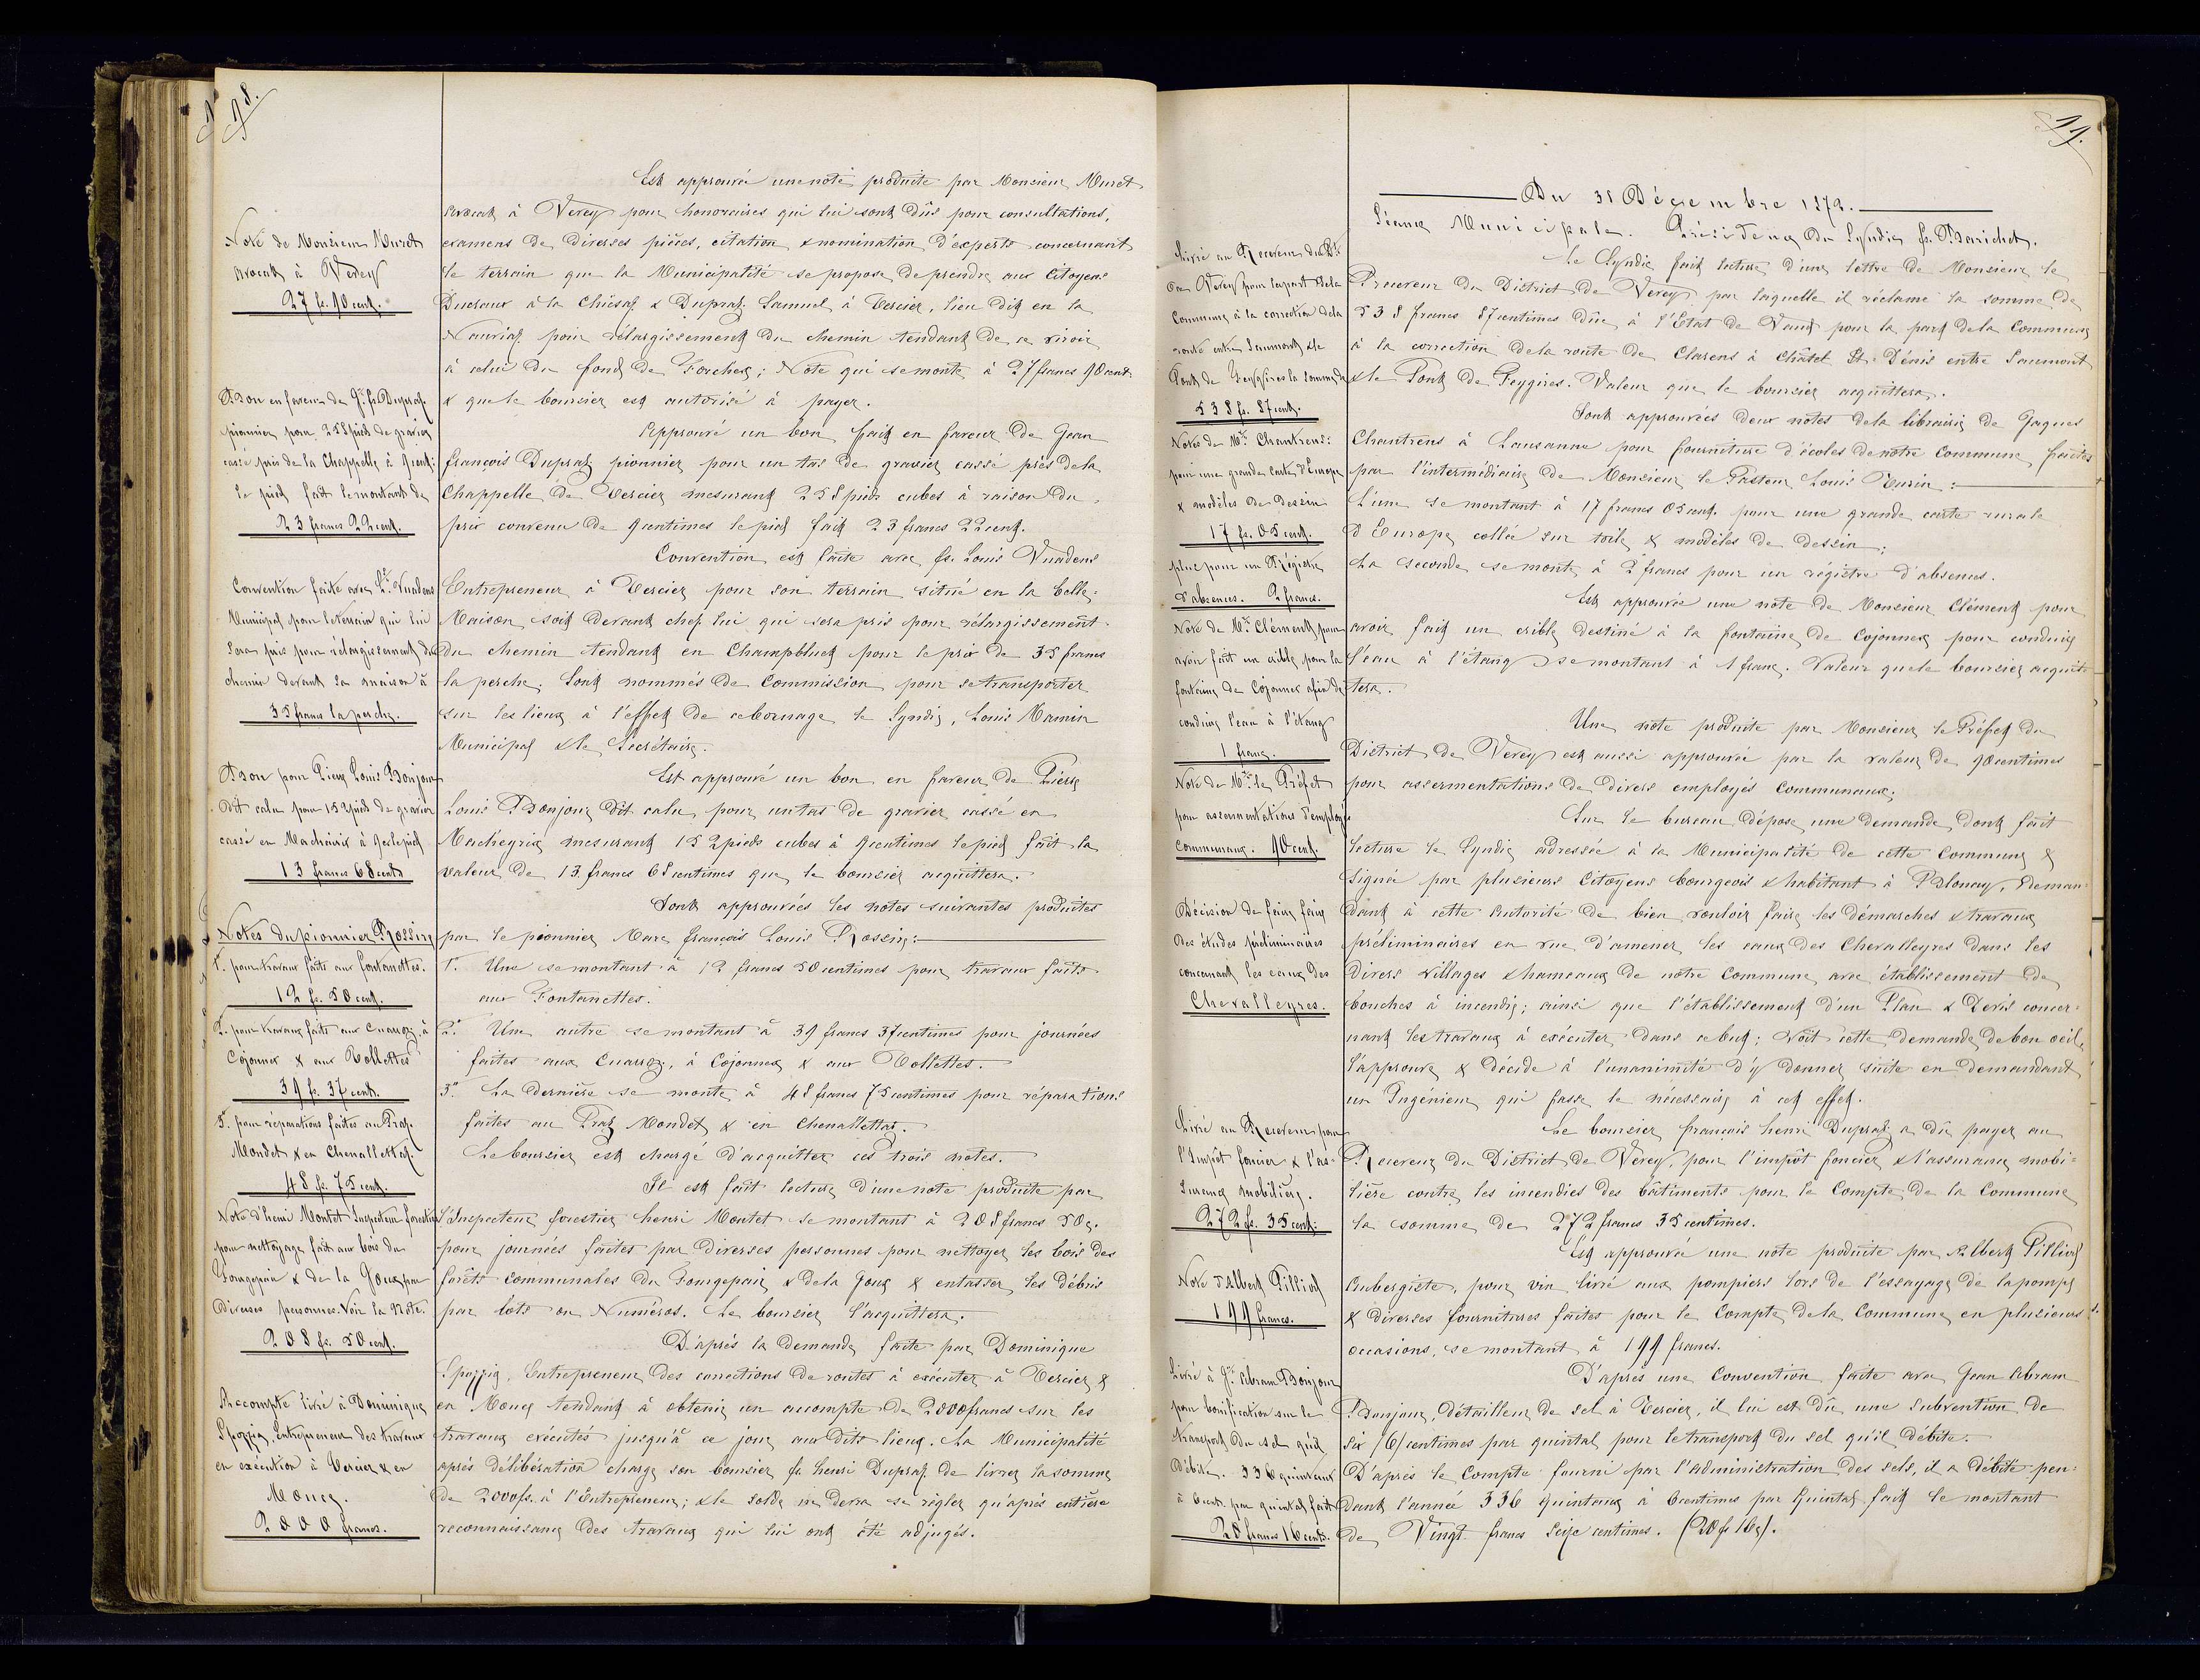 98.
Est approuvée une note produite par Monsieur Muret
Avocat à Vevey pour honoraires qui lui sont dûs pour consultations,
examens de diverses pièces, citation & nomination d'experts concernant
le terrain que la Municipalité se propose de prendre aux Citoyens
Ducraux à la Chiésaz & Dupraz Samuel à Tercier, lieu dit en la
pour rélargissement du chemin tendant de ce
à celui du fond de Forchex; Note qui se monte à 27 francs 90 cent.
& que le boursier est autorisé à payer.
Note de Monsieur Muret
Avocat à Vevey
27 fs. 90 cent.
Approuvé un bon fait en faveur de Jean
françois Dupraz pionnier pour un tas de gravier cassé près de la
Chappelle de Tercier mesurant 258 pieds cubes à raison du
prix convenu de 9 centimes le pied fait 23 francs 22 cent.
Bon en faveur de Jn. fs. Dupraz
pionnier pour 258 pieds de gravier
cassé près de la Chappelle à 9 cent:
le pied fait le montant de
23 francs 22 cent.
Convention est faite avec fs. Louis Vuadens
Entrepreneur à Tercier pour son terrain situé en la Belle-
Maison soit devant chez lui qui sera pris pour rélargissement
du chemin tendant en Champbluet pour le prix de 35 francs
la perche. Sont nommés de Commission pour se transporter
sur les lieux à l'effet de ce bornage le Syndic, Louis Mamin
Municipal & le Secrétaire.
Convention faite avec Ls. Vuadens
Municipal pour le terrain qui lui
sera pris pour rélargissement du
chemin devant sa maison à
35 francs la perche.
Est approuvé un bon en faveur de Pierre
Louis Bonjour dit calu, pour un tas de gravier cassé en
Macheyrie mesurant 152 pieds cubes à 9 centimes le pied fait la
valeur de 13 francs 68 centimes que le boursier acquittera.
Bon pour Pierre Louis Bonjour
dit calu pour 152 pieds de gravier
cassé en à 9 c. le pied
13 francs 68 cents
Sont approuvées les notes suivantes produites
par le pionnier Marc françois Louis Rossire:
1°. Une se montant à 12 francs 50 centimes pour travaux faits
aux Fontanettes.
2°. Une autre se montant à 39 francs 37 centimes pour journées
faites aux Cuarroz, à Cojonnex & aux Tollettes.
3°. La dernière se monte à 48 francs 75 centimes pour réparations
faites au Praz Mondet & en Chenallettaz.
Le boursier est chargé d'acquitter ces trois notes.
Notes du pionnier Rossire
1°. pour travaux faits aux fontanettes.
12 fs. 50 cent.
2°. pour travaux faits aux Cuarroz, à
Cojonnex & aux Tollettes
39 fs. 37 cent.
3°. pour réparations faites au Praz
Mondet & en Chenallettaz.
48 fs. 75 cent.
Il est fait lecture d'une note produite par
l'Inspecteur forestier henri Montet se montant à 208 francs 50 c.
pour journées faites par diverses personnes pour nettoyer les bois des
forêts communales du Fourgepair & de la Joux & entasser les débris
par lots ou Numéros. Le boursier l'acquittera.
Note d'henri Montet Inspecteur forestier
pour nettoyage fait aux bois du
Fourgepair & de la Joux par
diverses personnes. Voir la Note.
208 fs. 50 cent.
D'après la demande faite par Dominique
Spozzia, Entrepreneur des corrections de routes à exécuter à Tercier &
en Moucy tendant à obtenir un accompte de 2000 francs sur les
travaux exécutés jusqu'à ce jour aux dits lieux. La Municipalité
après délibération charge son boursier fs. henri Dupraz de livrer la somme
de 2000 fs. à l'Entrepreneur; & le solde ne devra se règler qu'après entière
reconnaissance des travaux qui lui ont été adjugés.
Accompte livré à Dominique
Spozzia, Entrepreneur des travaux
en exécution à Tercier & en
Moucy.
2000 francs.
99.
Du 31 Décembre 1872.
Séance Municipale. Présidence du Syndic fs. Barichet.
Le Syndic fait lecture d'une lettre de Monsieur le
Receveur du District de Vevey par laquelle il réclame la somme de
538 francs 87 centimes dûe à l'Etat de Vaud pour la part de la Commune
à la correction de la route de Clarens à Châtel St. Dénis entre Saumont
& le Pont de Feygires. Valeur que le boursier acquittera.
Livré au Receveur du Dt.
de Vevey pour la part de la
Commune à la correction de la
route entre Saumont & le
Pont de Feygires la somme de
538 fs. 87 cent.
Sont approuvées deux notes de la librairie de Jaques
Chantrens à Lausanne pour fourniture d'écoles de notre Commune faites
par l'intermédiaire de Monsieur le Pasteur Louis Turin:
L'une se montant à 17 francs 05 cent. pour une grande carte murale
d'Europe collée sur toile & modèles de dessin;
La seconde se monte à 2 francs pour un régistre d'absences.
Note de Mr. Chantrens:
pour une grande carte d'Europe
& modèles de dessin
17 fs. 05 cent.
plus pour un Régistre
d'absences. 2 francs.
Est approuvée une note de Monsieur Clément pour
avoir fait un crible destiné à la fontaine de Cojonnex pour conduire
l'eau à l'étang se montant à 1 franc. Valeur que le boursier acquit-
tera.
Note de Mr. Clément pour
avoir fait un crible pour la
fontaine de Cojonnex afin de
conduire l'eau à l'étang
1 franc.
Une note produite par Monsieur le Préfet du
District de Vevey est aussi approuvée par la valeur de 90 centimes
pour assermentations de divers employés Communaux.
Note de Mr. le Préfet
pour assermentations d'employés
Communaux. 90 cent.
Sur le bureau dépose une demande dont fait
lecture le Syndic adressée à la Municipalité de cette Commune &
signée par plusieurs Citoyens bourgeois & habitant à Blonay, deman-
dant à cette Autorité de bien vouloir faire les démarches & travaux
préliminaires en vue d'amener les eaux des Chevalleyres dans les
divers villages & hameaux de notre Commune avec établissement de
bouches à incendie; ainsi que l'établissement d'un Plan & Devis concer-
nant les travaux à exécuter dans ce but; Voit cette demande de bon oeil,
l'approuve & décide à l'unanimité d'y donner suite en demandant
un Ingénieur qui fasse le nécessaire à cet effet.
Décision de faire faire
des études préliminaires
concernant les eaux des
Chevalleyres.
Le boursier françois henri Dupraz a dû payer au
Receveur du District de Vevey, pour l'impôt foncier & l'assurance mobi-
lière contre les incendies des bâtiments pour le Compte de la Commune
la somme de 272 francs 35 centimes.
Livré au Receveur pour
l'Impôt foncier & l'as-
surance mobilière.
272 fs. 35 cent:
Est approuvée une note produite par Albert Pilliod
Aubergiste, pour vin livré aux pompiers lors de l'essayage de la pompe
& diverses fournitures faites pour le Compte de la Commune en plusieurs
occasions, se montant à 199 francs.
Note d'Albert Pilliod
199 francs.
D'après une Convention faite avec Jean Abram
Bonjour, détailleur de sel à Tercier, il lui est dû une subvention de
six /6/ centimes par quintal pour le transport du sel qu'il débite.
D'après le Compte fourni par l'administration des sels, il a débité pen-
dant l'année 336 quintaux à 6 centimes par Quintal fait le montant
de Vingt francs seize centimes. (20 fs 16 c).
Livré à Jn. Abram Bonjour
pour bonification sur le
transport du sel qu'il
débite. 336 quintaux
à 6 cent. par quintal fait
20 francs 16 cents.